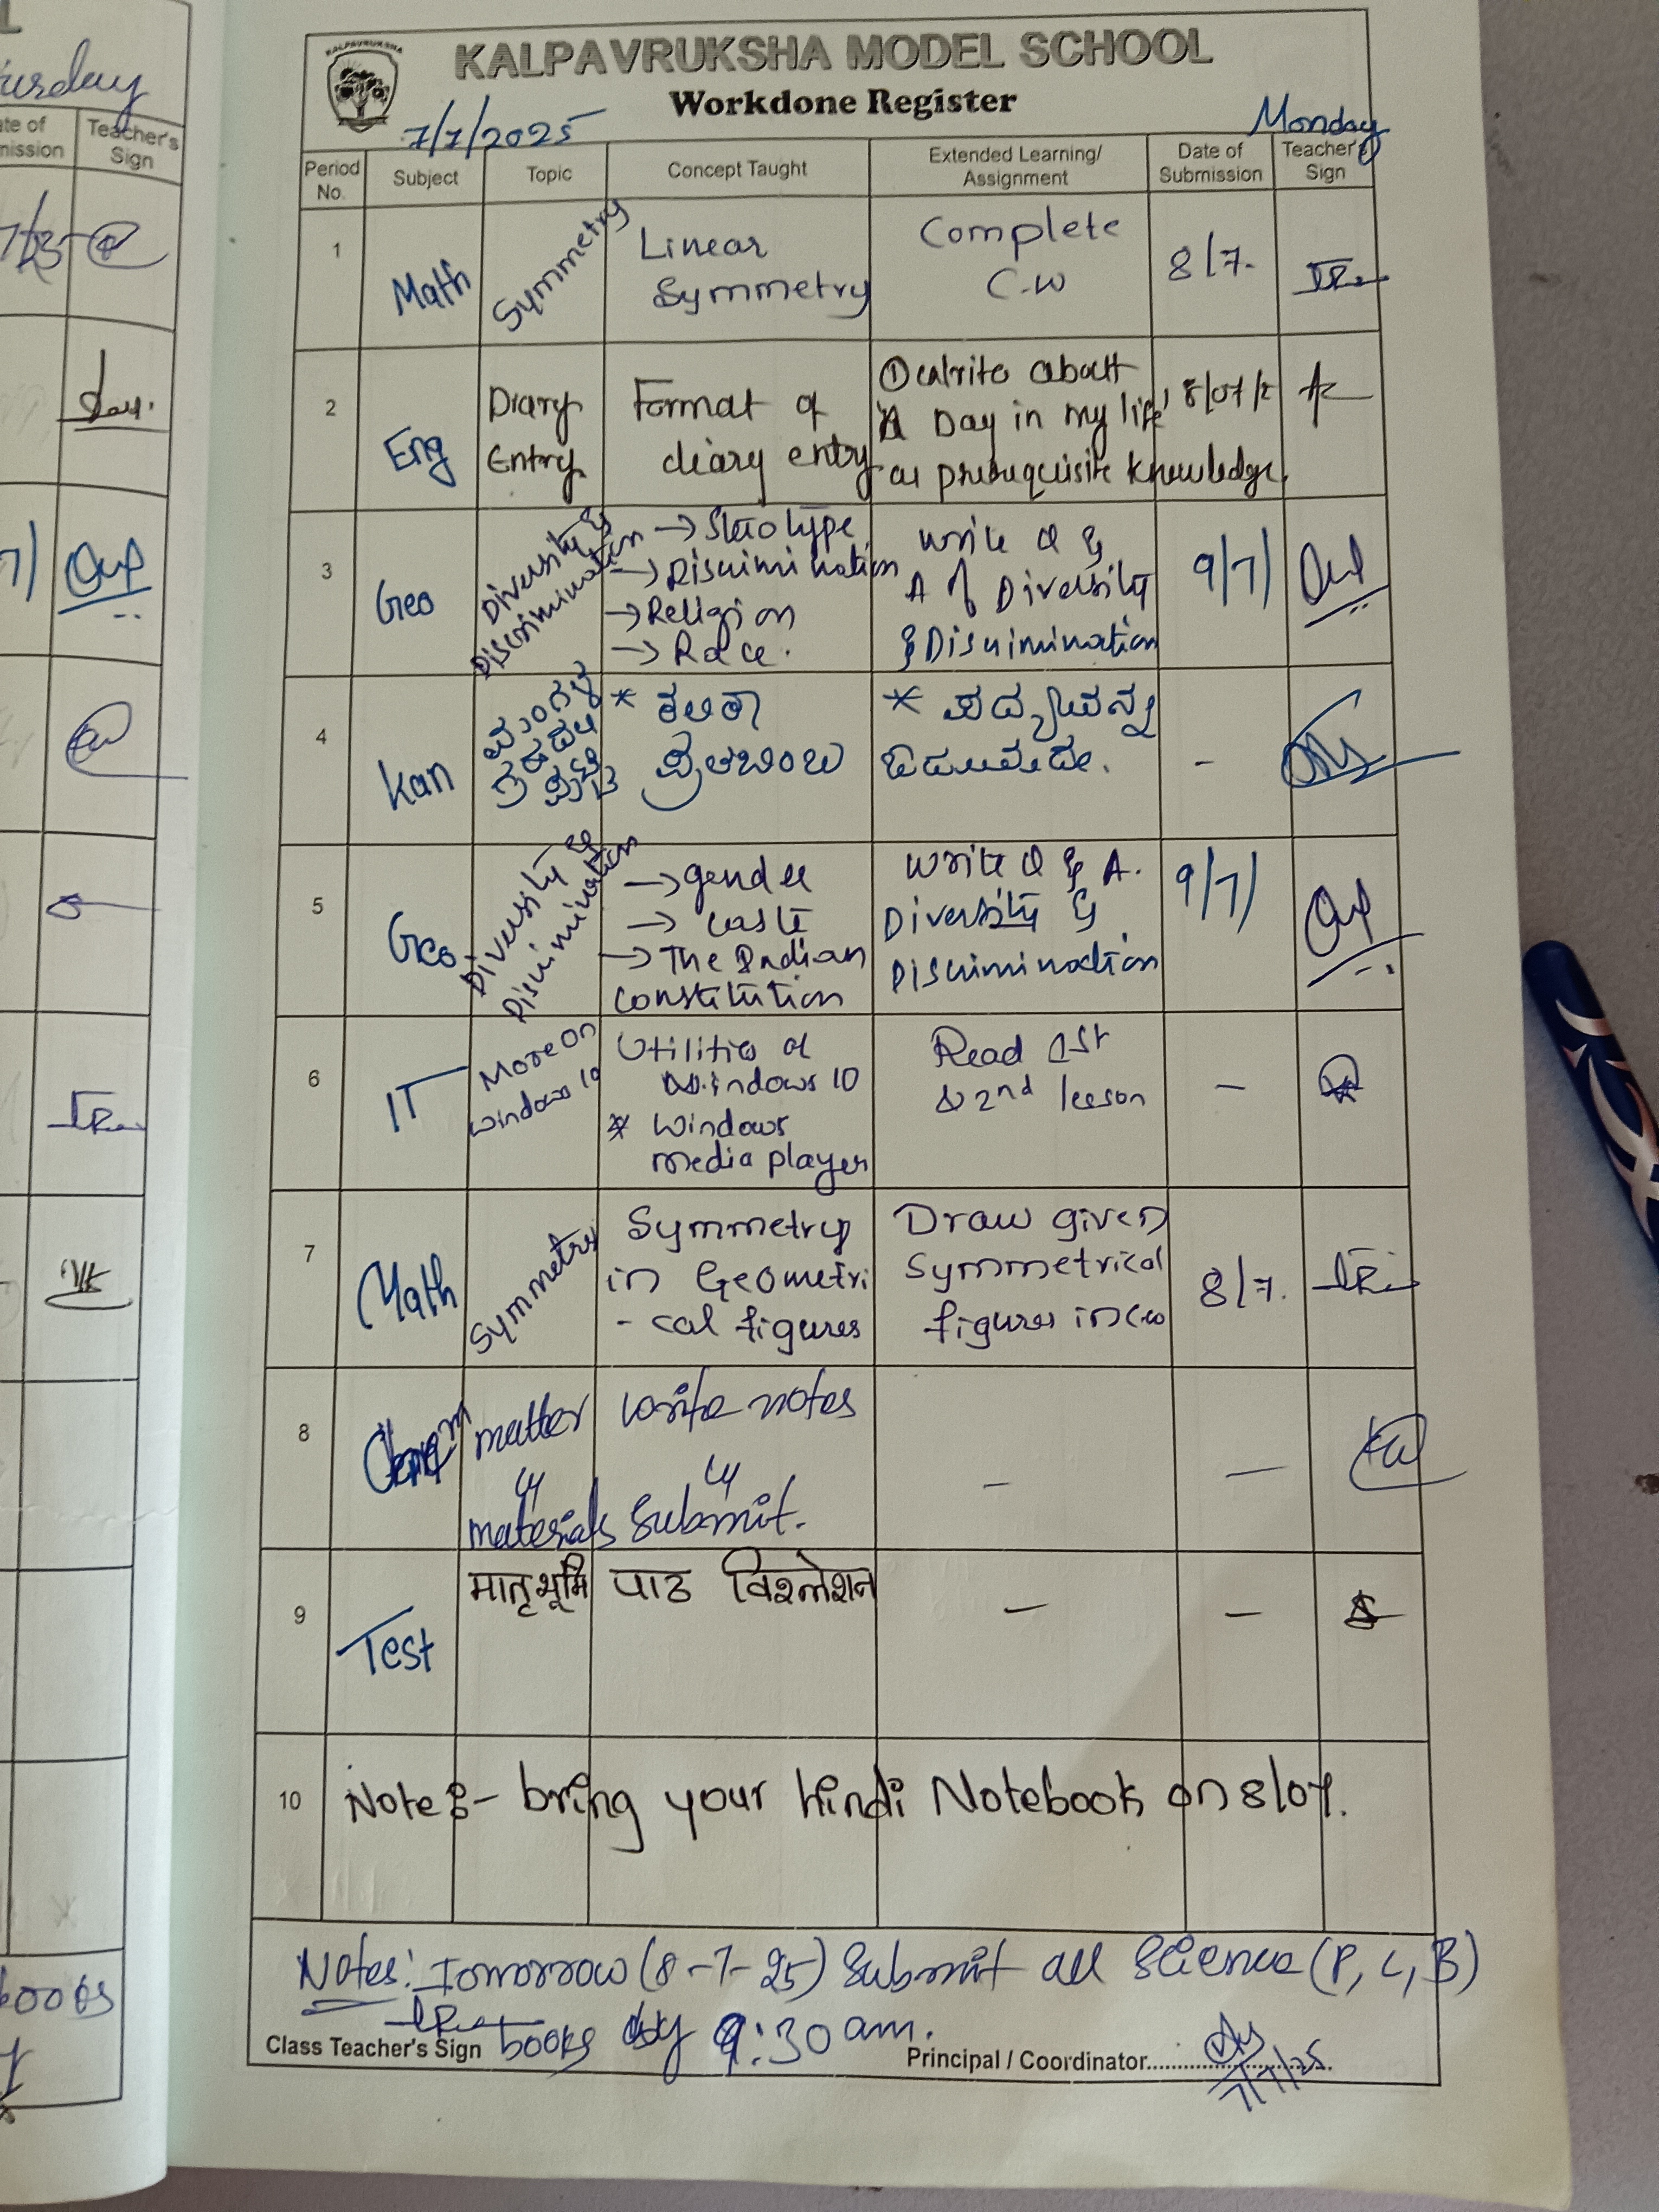 KALPAVRUKSHA
KALPAVRUKSHA MODEL SCHOOL
Workdone Register
7/7/2025 Monday
Period No. Subject Topic Concept Taught Extended Learning/ Assignment Date of Submission Teacher's Sign
1 Math Symmetry Linear Symmetry Complete C.W 8/7.
2 Eng Diary Entry Format of diary entry ① write about 'A Day in my life' as prerequisite knowledge.
3 Geo Diversity & Discrimination → Sterotype → Discrimination → Religion → Race. Write Q & A of Diversity & Discrimination 9/7/
4 Kan * * -
5 Geo Diversity & Discrimination → gender → caste → The Indian Constitution Write Q & A. Diversity & Discrimination 9/7/
6 IT More On Windows 10 Utilities of Windows 10 * Windows media player Read 1st & 2nd lesson -
7 Math Symmetry Symmetry in Geometri - cal figures Draw given Symmetrical figures in cw 8/7.
8 matter & materials write notes & submit. - -
9 Test मातृभूमि पाठ विश्लेशन - -
10 Note :- bring your hindi Notebook on 8/07.
Notes: Tomorrow (8-7-25) Submit all Science (P, C, B)
books by 9:30 am.
Class Teacher's Sign Principal / Coordinator
7/7/25
urday
Teacher's Sign
books